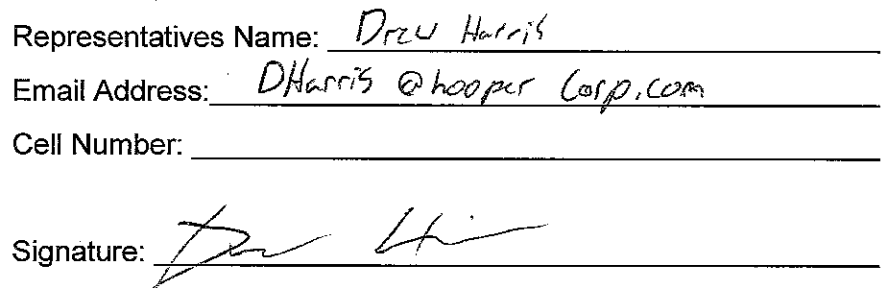 Representatives Name: Drew Harris
Email Address: DHarris @hooper Corp.com
Cell Number:
Signature: